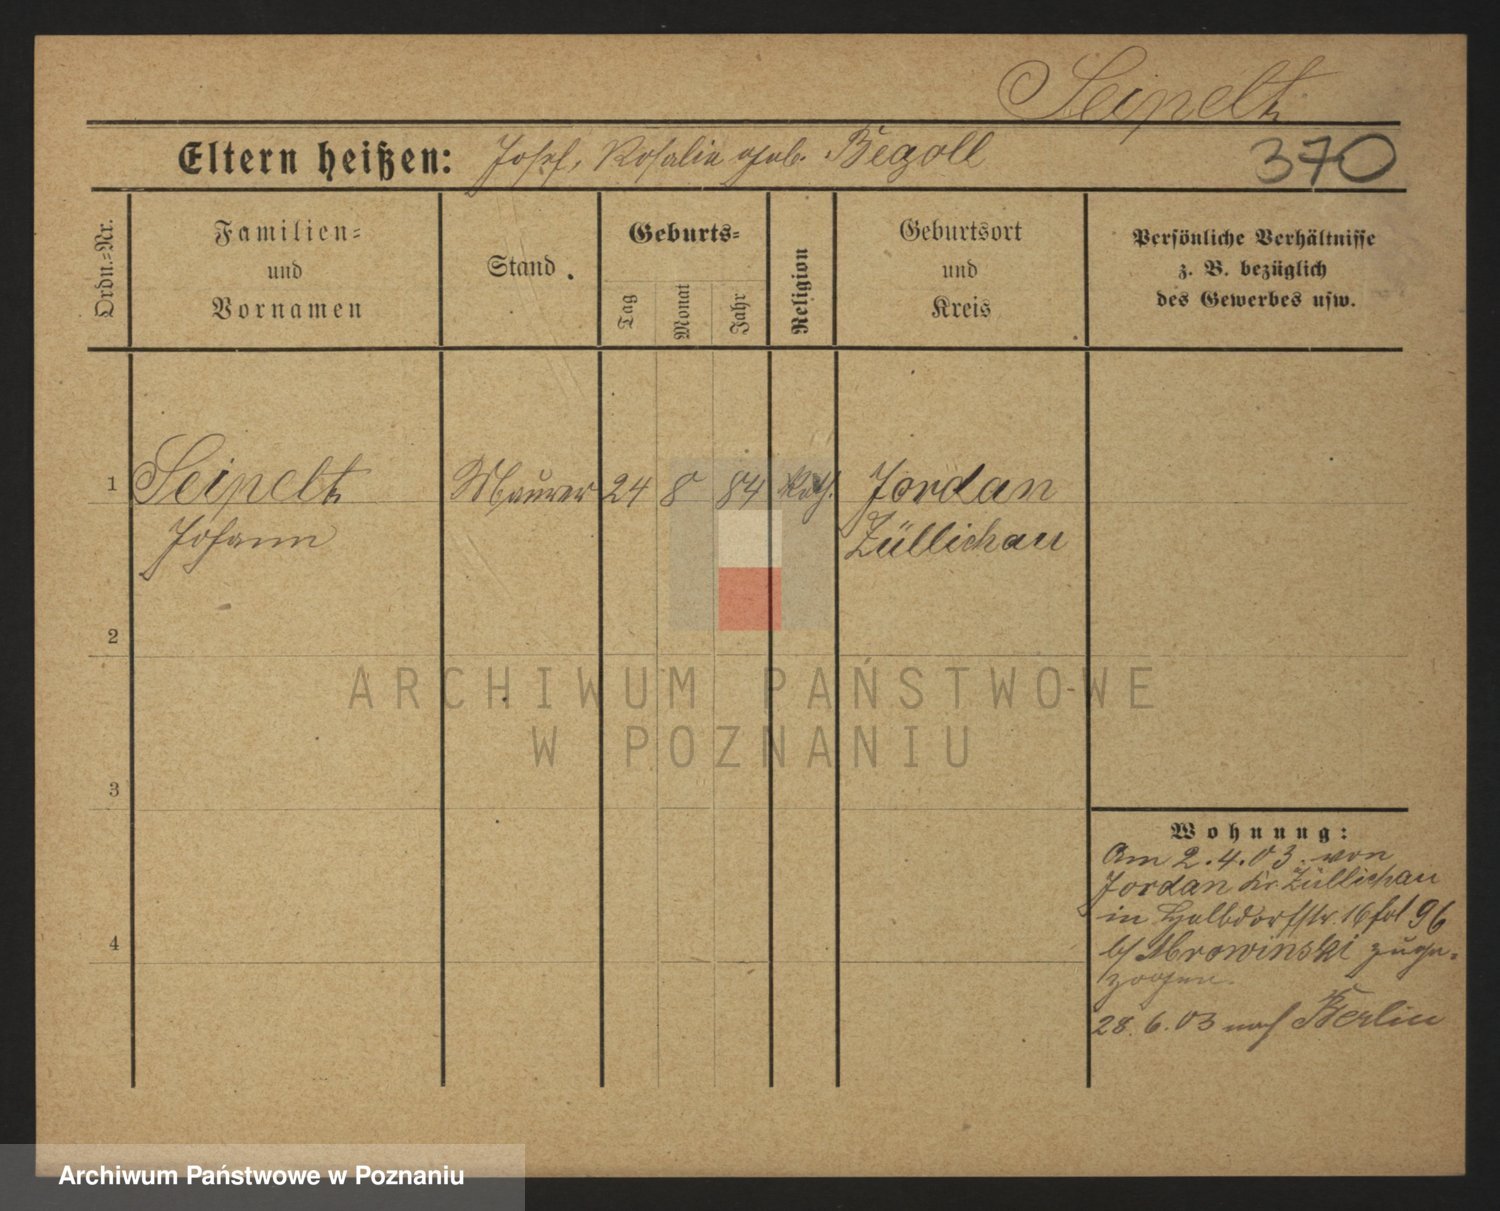 Seipelt
Eltern heißen: Josef, Rosalia geb. Begoll
370
Ordn.-Nr.
Familien-
und
Vornamen
Stand.
Geburts-
Tag
Monat
Jahr
Religion
Geburtsort
und
Kreis
Persönliche Verhältnisse
z. B. bezüglich
des Gewerbes usw.
1 Seipelt Maurer 24 8 84 Kath. Jordan
Johann Züllichau
2
3
4
Wohnung:
Am 2.4.03. von
Jordan Kr. Züllichau
in Halbdorfstr. 16 fol 96
b/ Mrowinski zuge-
zogen.
28.6.03 nach Berlin
ARCHIWUM PAŃSTWOWE
W POZNANIU
Archiwum Państwowe w Poznaniu